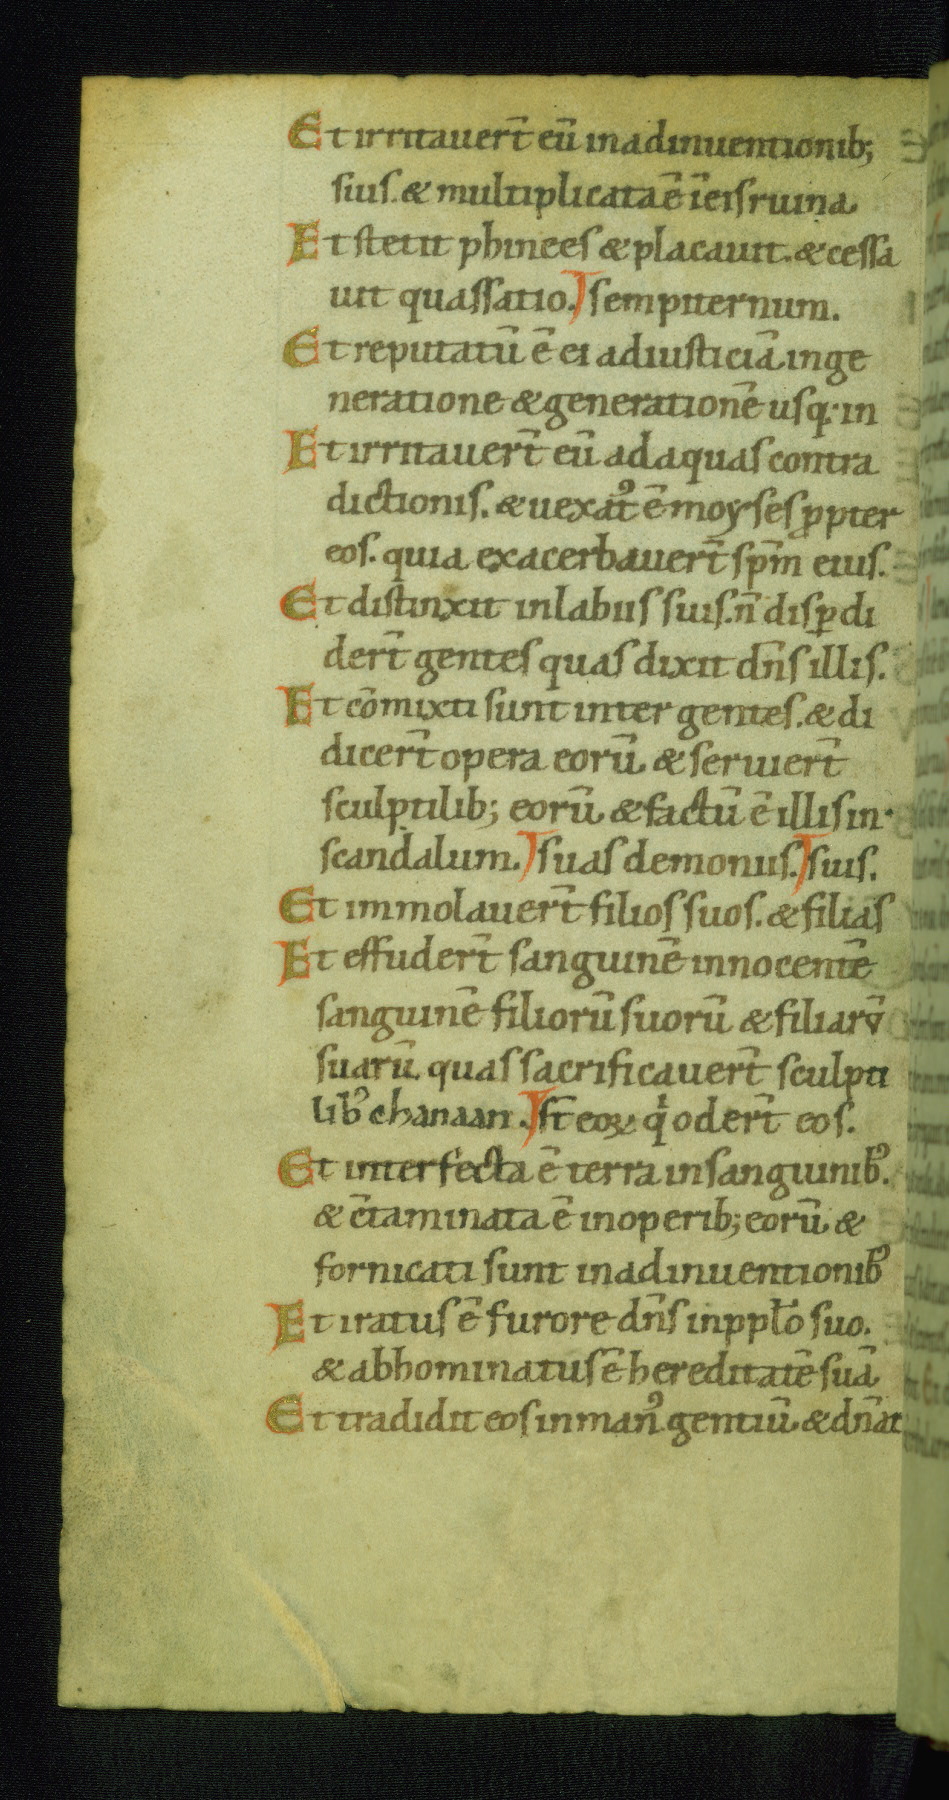 Et irritauer̄t eū inadinuentionib;
suis. & multiplicata ē ī eis ruina.
Et stetit phinees & placauit. & cessa
uit quassatio. sempiternum.
Et reputatū ē ei adiusticiā. inge
neratione & generationē usq; in
Et irritauer̄t eū adaquas contra
dictionis. & uexat᷒ ē moyses ꝓpter
eos. quia exacerbauer̄t sp̄m eius.
Et distinxit inlabiis suis. n̄ disꝑdi
der̄t gentes quas dixit dn̄s illis.
Et cōmixti sunt inter gentes. & di
dicer̄t opera eorū. & seruier̄t
sculptilib; eorū. & factū ē illis in
scandalum. suas demoniis. suis.
Et immolauer̄t filios suos. & filias
Et effuder̄t sanguinē innocentē
sanguinē filiorū suorū & filiarv̄
suarū. quas sacrificauer̄t sculpti
lib᷒ chanaan. st̄ eoꝝ qͥ oder̄t eos.
Et interfecta ē terra insanguinib᷒.
& c̄taminata ē inoperib; eorū. &
fornicati sunt inadinuentionib᷒
Et iratus ē furore dn̄s inppl̄o suo.
& abhominatus ē hereditatē suā.
Et tradidit eos inman᷒ gentiū. & dn̄at